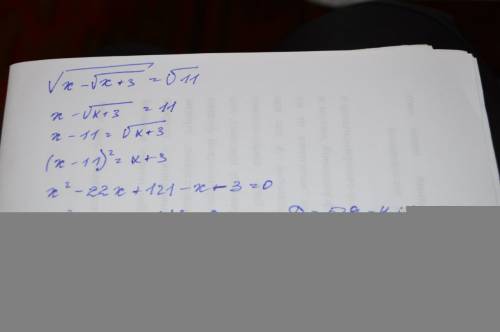 √(x - √(x+3)) = √11
x - √(x+3) = 11
x - 11 = √(x+3)
(x - 11)² = x + 3
x² - 22x + 121 - x - 3 = 0